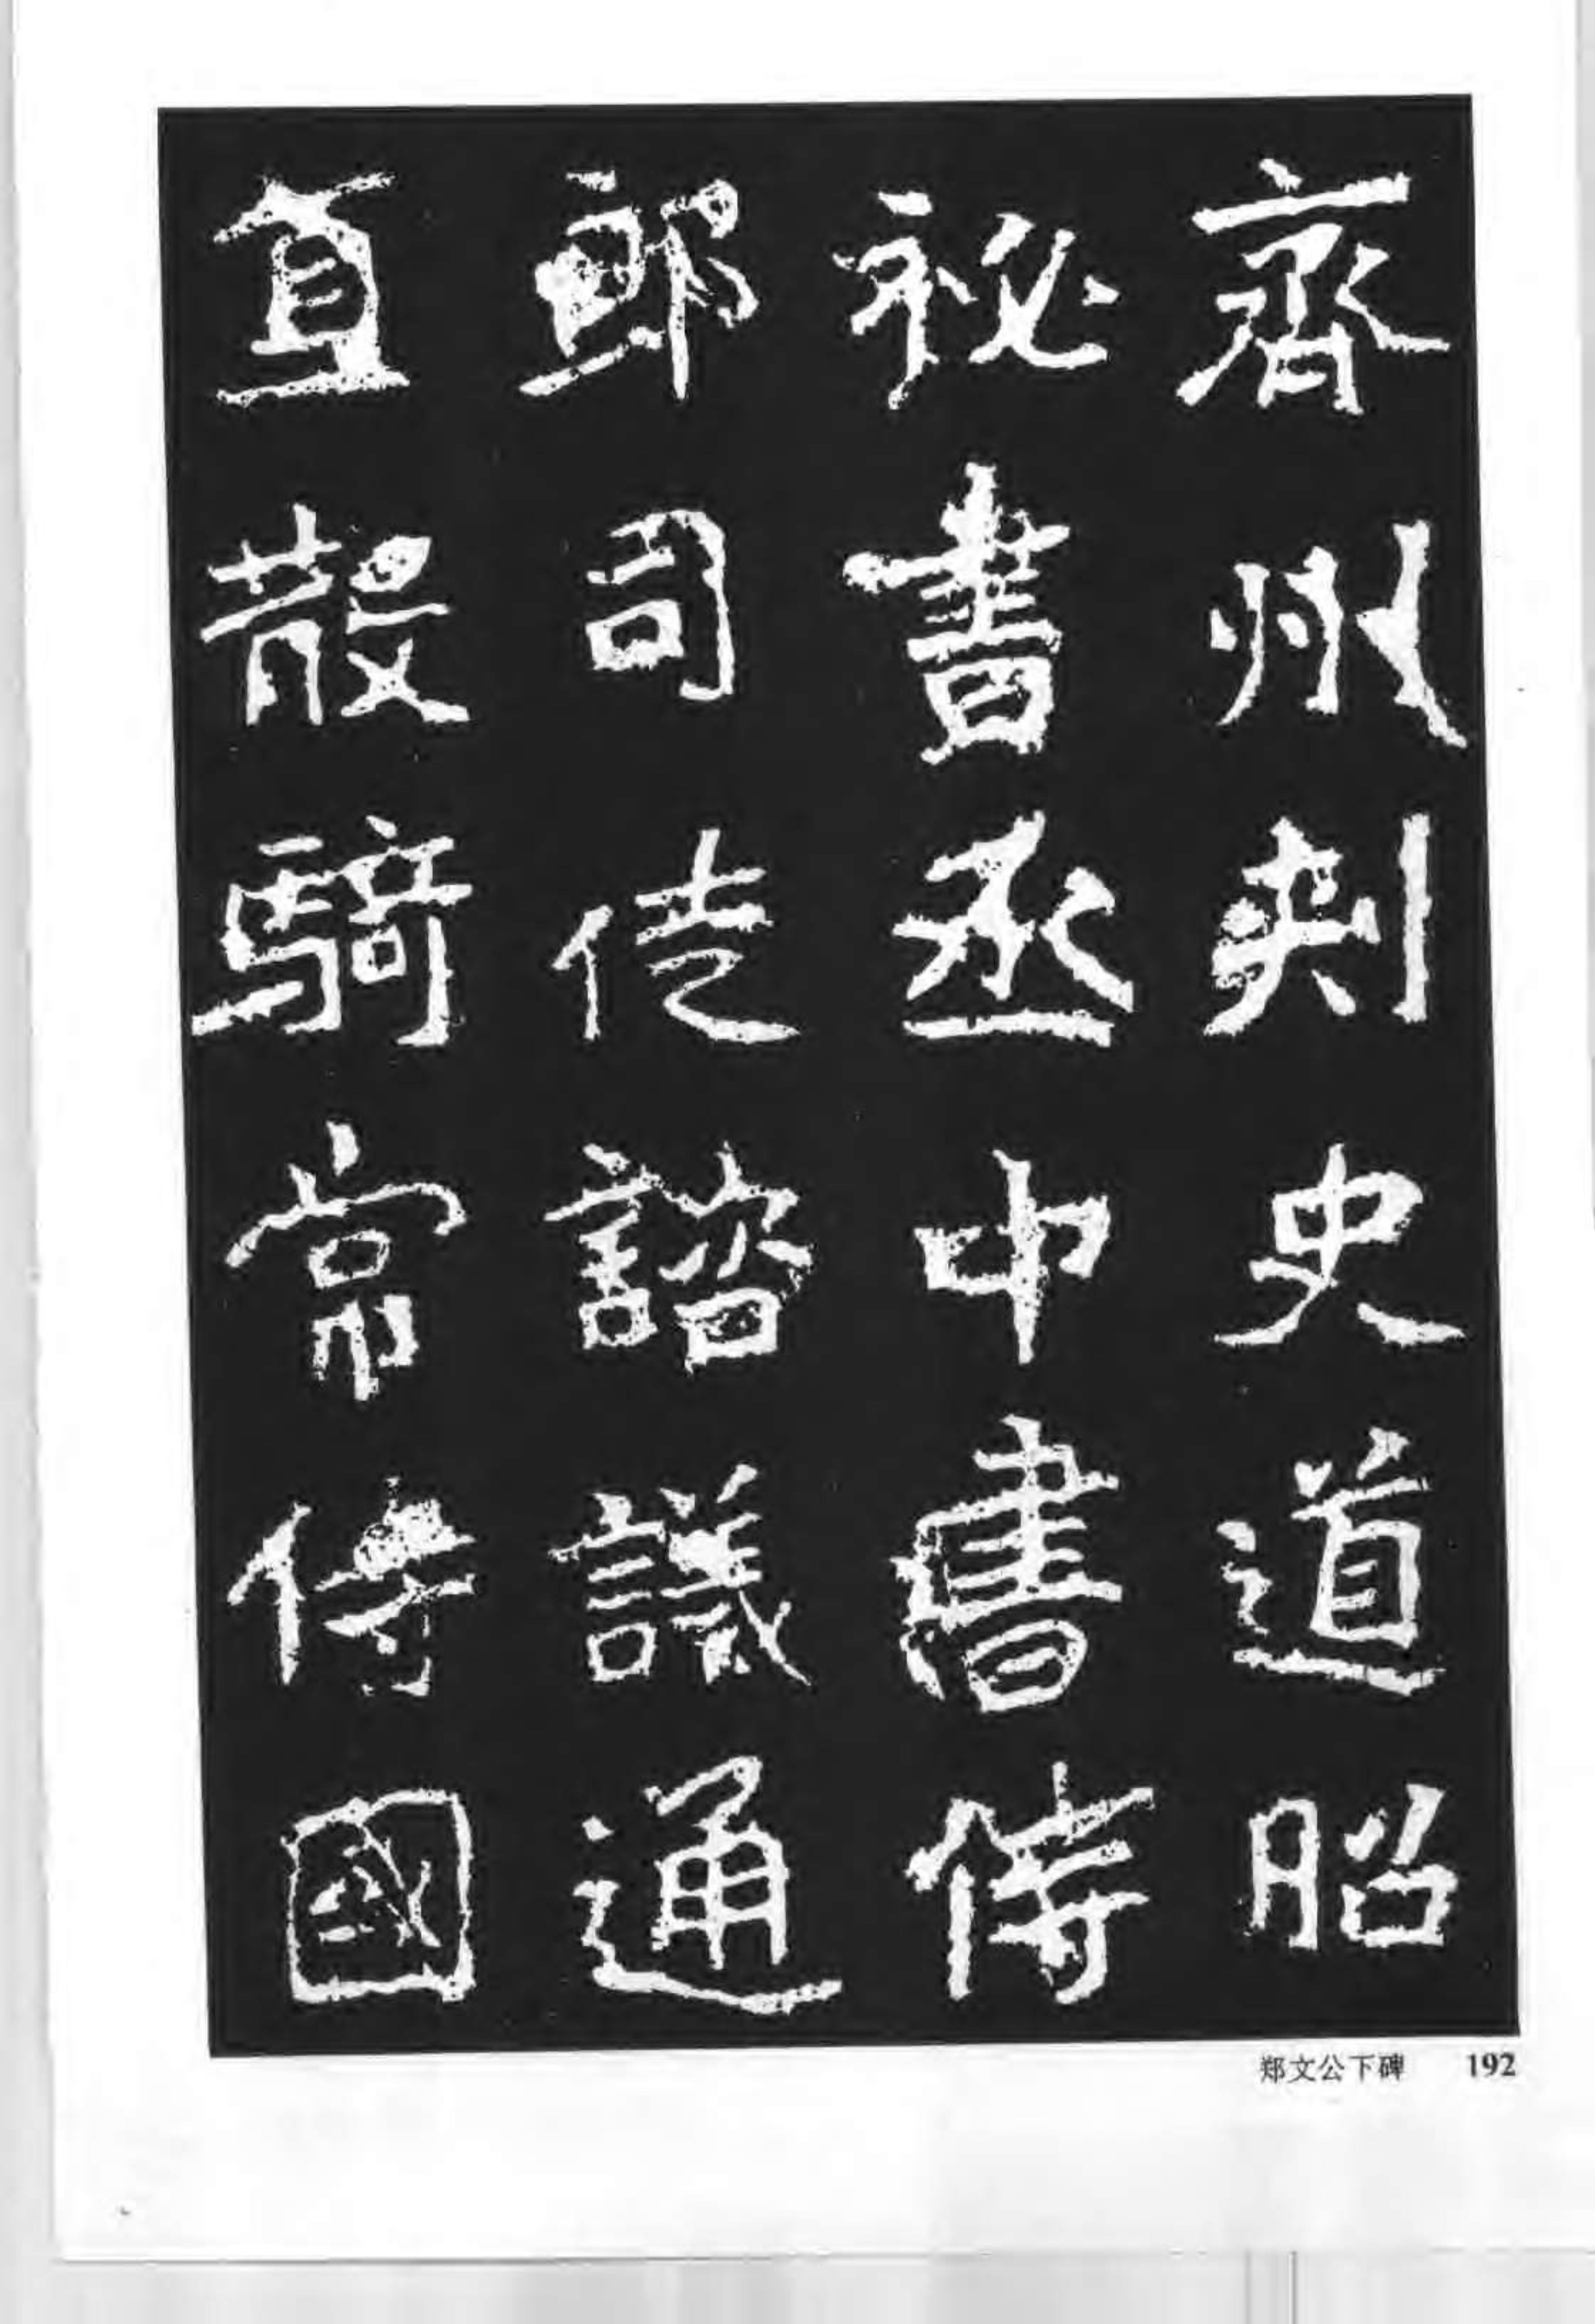 齊州刺史道昭
祕書丞中書侍
郎司徒諮議通
直散騎常侍國
郑文公下碑 192